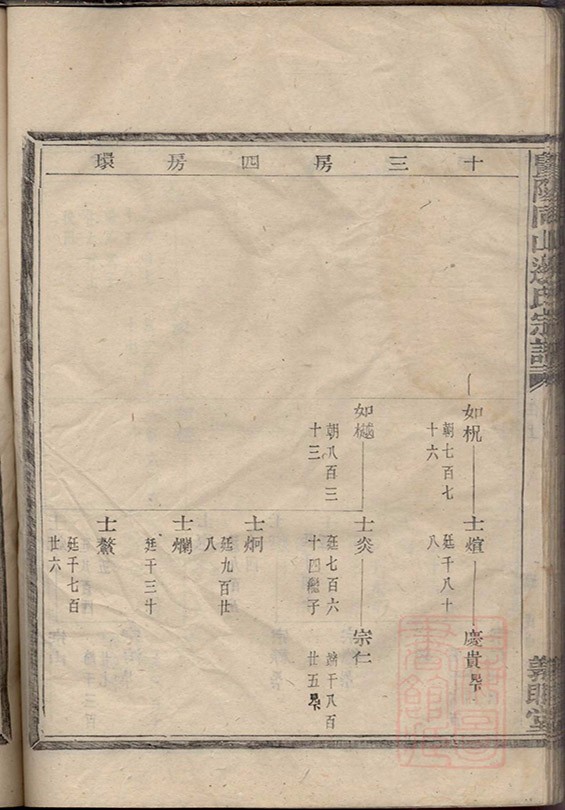 十三房四房環
如柷
朝七百七
十六
士煊
廷千八十
八
慶貴
如樾
朝八百三
十三
士炎
廷七百六
十四繼子
宗仁
千八百
廿五
士炯
廷九百廿
八
士爛
廷千三十
士鰲
廷千七百
廿六
氏宗譜
義
堂